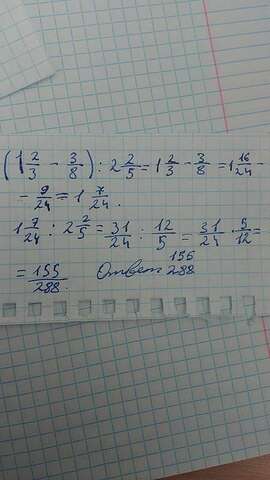 (1 2/3 - 3/8) : 2 2/5 = 1 2/3 - 3/8 = 1 16/24 -
- 9/24 = 1 7/24 .
1 7/24 : 2 2/5 = 31/24 : 12/5 = 31/24 · 5/12 =
= 155/288 Ответ 155/288